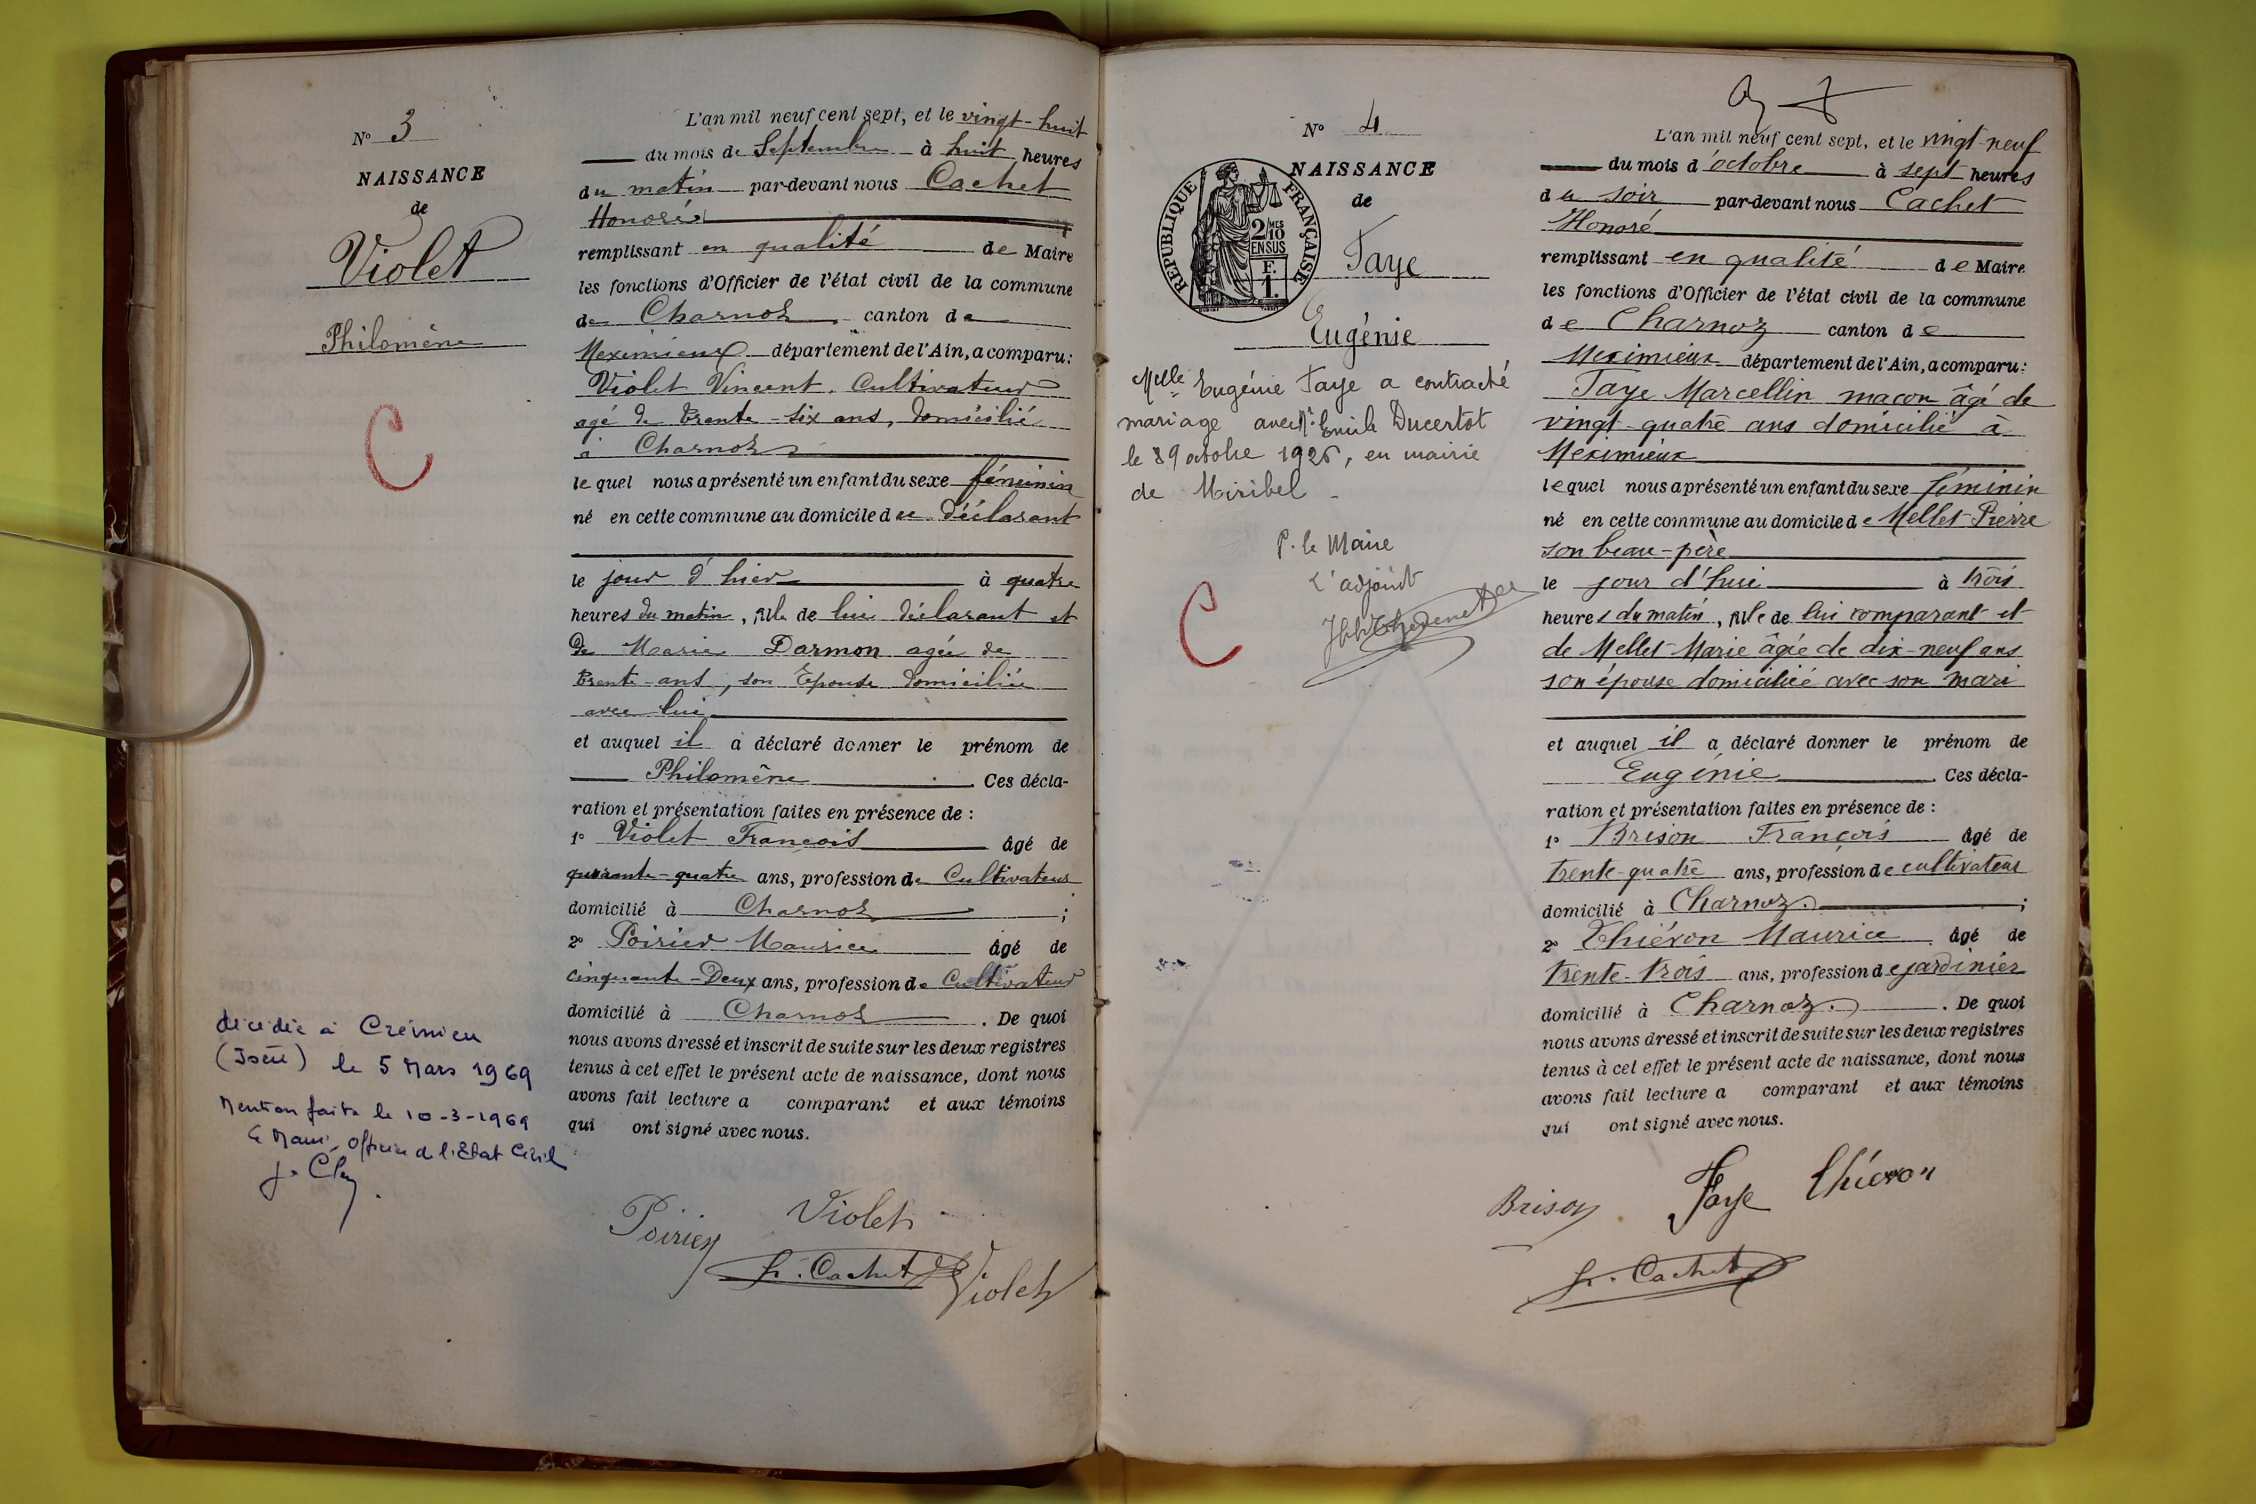 N° 3
NAISSANCE
de
Violet
Philomène
C
décédée à Crémieu
(Isère) le 5 Mars 1969
Mention faite le 10-3-1969
Le Maire, Officier de l'Etat Civil
L'an mil neuf cent sept, et le vingt-huit
du mois de Septembre à huit heures
du matin par-devant nous Cachet
Honoré
remplissant en qualité de Maire
les fonctions d'Officier de l'état civil de la commune
de Charnoz canton de
Meximieux département de l'Ain, a comparu:
Violet Vincent, Cultivateur
agé de trente-six ans, domicilié
à Charnoz
lequel nous a présenté un enfant du sexe féminin
né en cette commune au domicile du déclarant
le jour d'hier à quatre
heures du matin, fille de lui déclarant et
de Marie Darmon agée de
trente ans, son Epouse domiciliée
avec lui
et auquel il a déclaré donner le prénom de
Philomène. Ces décla-
ration et présentation faites en présence de :
1° Violet François âgé de
quarante-quatre ans, profession de Cultivateur
domicilié à Charnoz ;
2° Poirier Maurice âgé de
cinquante-Deux ans, profession de Cultivateur
domicilié à Charnoz. De quoi
nous avons dressé et inscrit de suite sur les deux registres
tenus à cet effet le présent acte de naissance, dont nous
avons fait lecture a comparant et aux témoins
qui ont signé avec nous.
Poirier Violet
h. Cachet Violet
N° 4
NAISSANCE
de
RÉPUBLIQUE FRANÇAISE
2/10 MES
EN SUS
F.
1.
Faye
Eugénie
Melle Eugénie Faye a contracté
mariage avec Mr Emile Ducertot
le 19 octobre 1926, en mairie
de Miribel
P. le Maire
L'adjoint
C
L'an mil neuf cent sept, et le vingt-neuf
du mois d'octobre à sept heures
du soir par-devant nous Cachet
Honoré
remplissant en qualité de Maire
les fonctions d'Officier de l'état civil de la commune
de Charnoz canton de
Meximieux département de l'Ain, a comparu:
Faye Marcellin maçon âgé de
vingt-quatre ans domicilié à
Meximieux
lequel nous a présenté un enfant du sexe féminin
né en cette commune au domicile de Mellet Pierre
son beau-père
le jour d'hui à trois
heures du matin, fille de lui comparant et
de Mellet Marie âgée de dix-neuf ans
son épouse domiciliée avec son mari
et auquel il a déclaré donner le prénom de
Eugénie. Ces décla-
ration et présentation faites en présence de :
1° Brison François âgé de
trente-quatre ans, profession de cultivateur
domicilié à Charnoz ;
2° Thiévon Maurice âgé de
trente-trois ans, profession de jardinier
domicilié à Charnoz. De quoi
nous avons dressé et inscrit de suite sur les deux registres
tenus à cet effet le présent acte de naissance, dont nous
avons fait lecture a comparant et aux témoins
qui ont signé avec nous.
Brison Faye Thiévon
h. Cachet